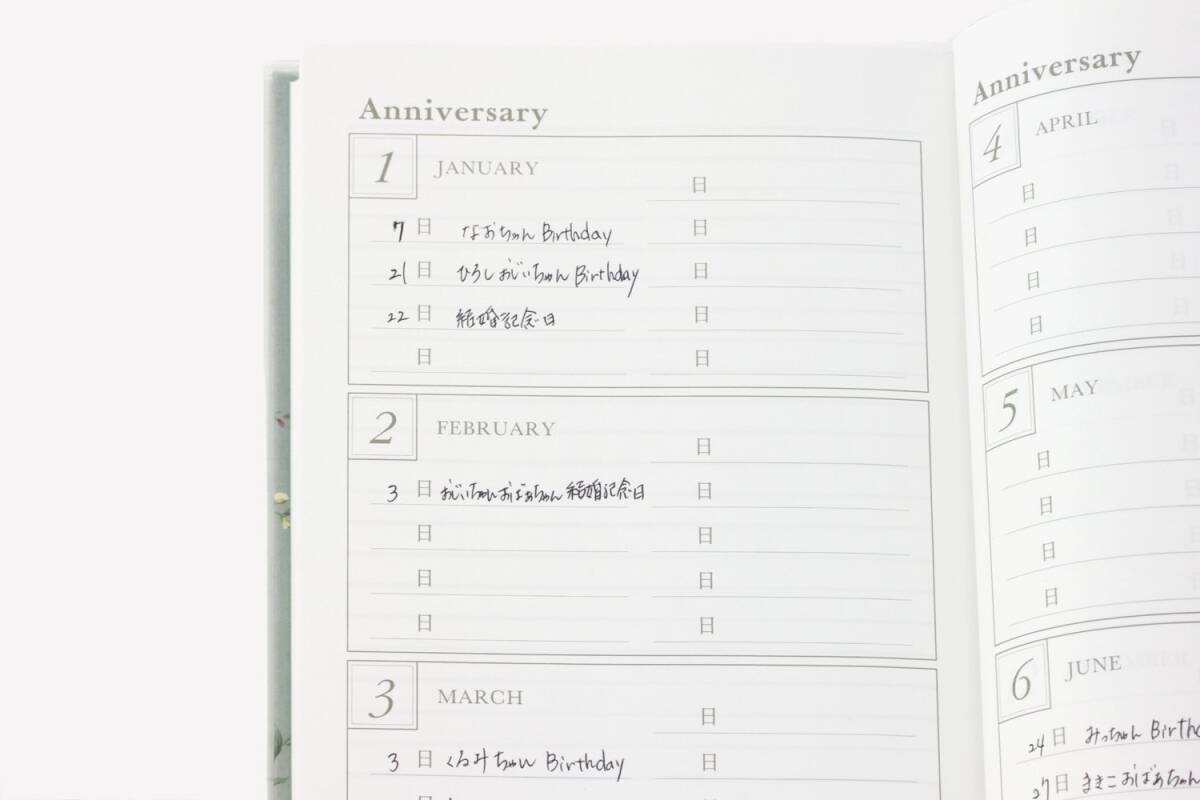 Anniversary
1 JANUARY
日
7日 なおちゃん Birthday 日
21日 ひろしおじいちゃん Birthday 日
22日 結婚記念日 日
日 日
2 FEBRUARY
日
3日 おじいちゃんおばあちゃん結婚記念日 日
日 日
日 日
日 日
3 MARCH
日
3日 くるみちゃん Birthday 日
Anniversary
4 APRIL
日
日
日
日
5 MAY
日
日
日
日
6 JUNE
24日 みっちゃん Birth
27日 まきこおばあちゃん